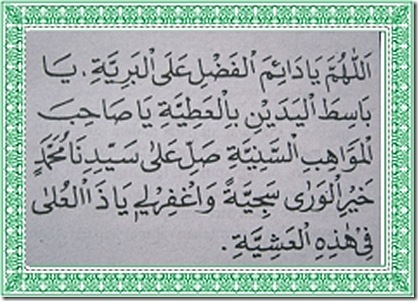 اَللّٰهُمَّ يَا دَائِمَ الْفَضْلِ عَلَى الْبَرِيَّةِ، يَا
بَاسِطَ الْيَدَيْنِ بِالْعَطِيَّةِ يَا صَاحِبَ
الْمَوَاهِبِ السَّنِيَّةِ صَلِّ عَلٰى سَيِّدِنَا مُحَمَّدٍ
خَيْرِ الْوَرٰى سَجِيَّةً وَاغْفِرْ لِي يَا ذَا الْعُلٰى
فِي هٰذِهِ الْعَشِيَّةِ.